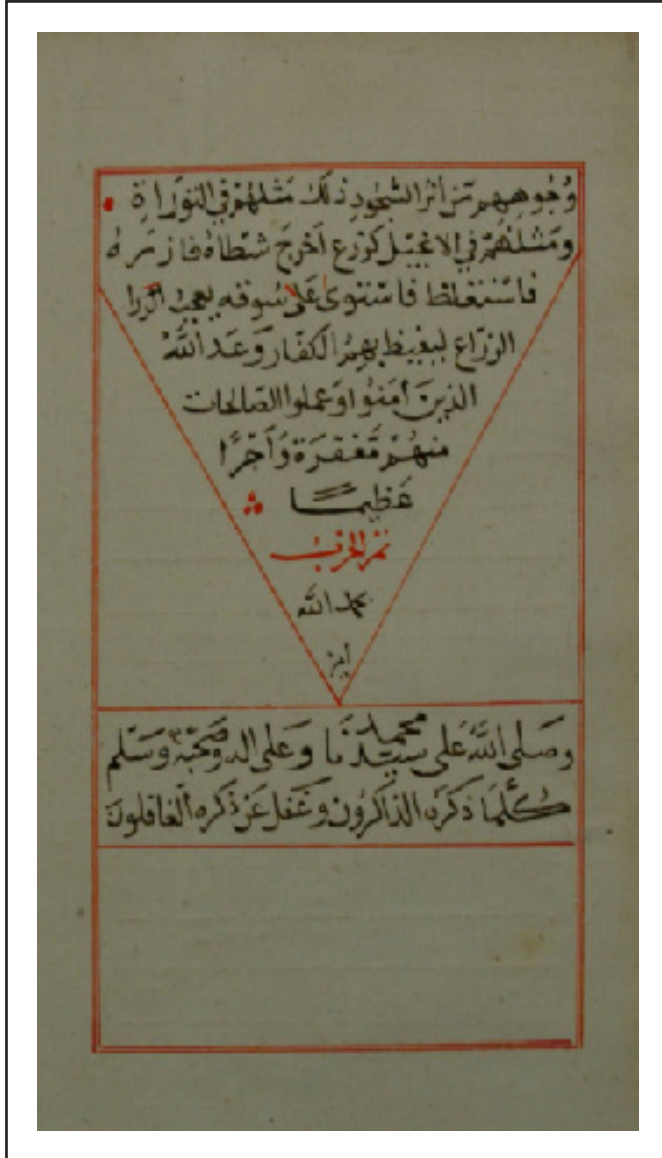 وُجُوهِهِم مِّنْ أَثَرِ السُّجُودِ ذَلِكَ مَثَلُهُمْ فِي التَّوْرَاةِ
وَمَثَلُهُمْ فِي الانجِيلِ كَزَرْعٍ أَخْرَجَ شَطْأَهُ فَازَرَهُ
فَاسْتَغْلَظَ فَاسْتَوَى عَلَى سُوقِهِ يُعْجِبُ
الزرّاع ليغيظ بهمُ الكفّار وَعَدَ اللَّهُ
الذينَ آمَنُوا وَعملوا الصّالحات
منهُمْ مَّغْفِرَةً وَأَجْرًا
عَظِيمًا
تم الحزب
بحمد الله
وصَلى اللَّه عَلى سيدنَا محمد وَعَلى اله وصَحْبه وَسَلم
كُلَّمَا ذكَرَه الذاكرُون وغَفل عَن ذكره الغَافلون